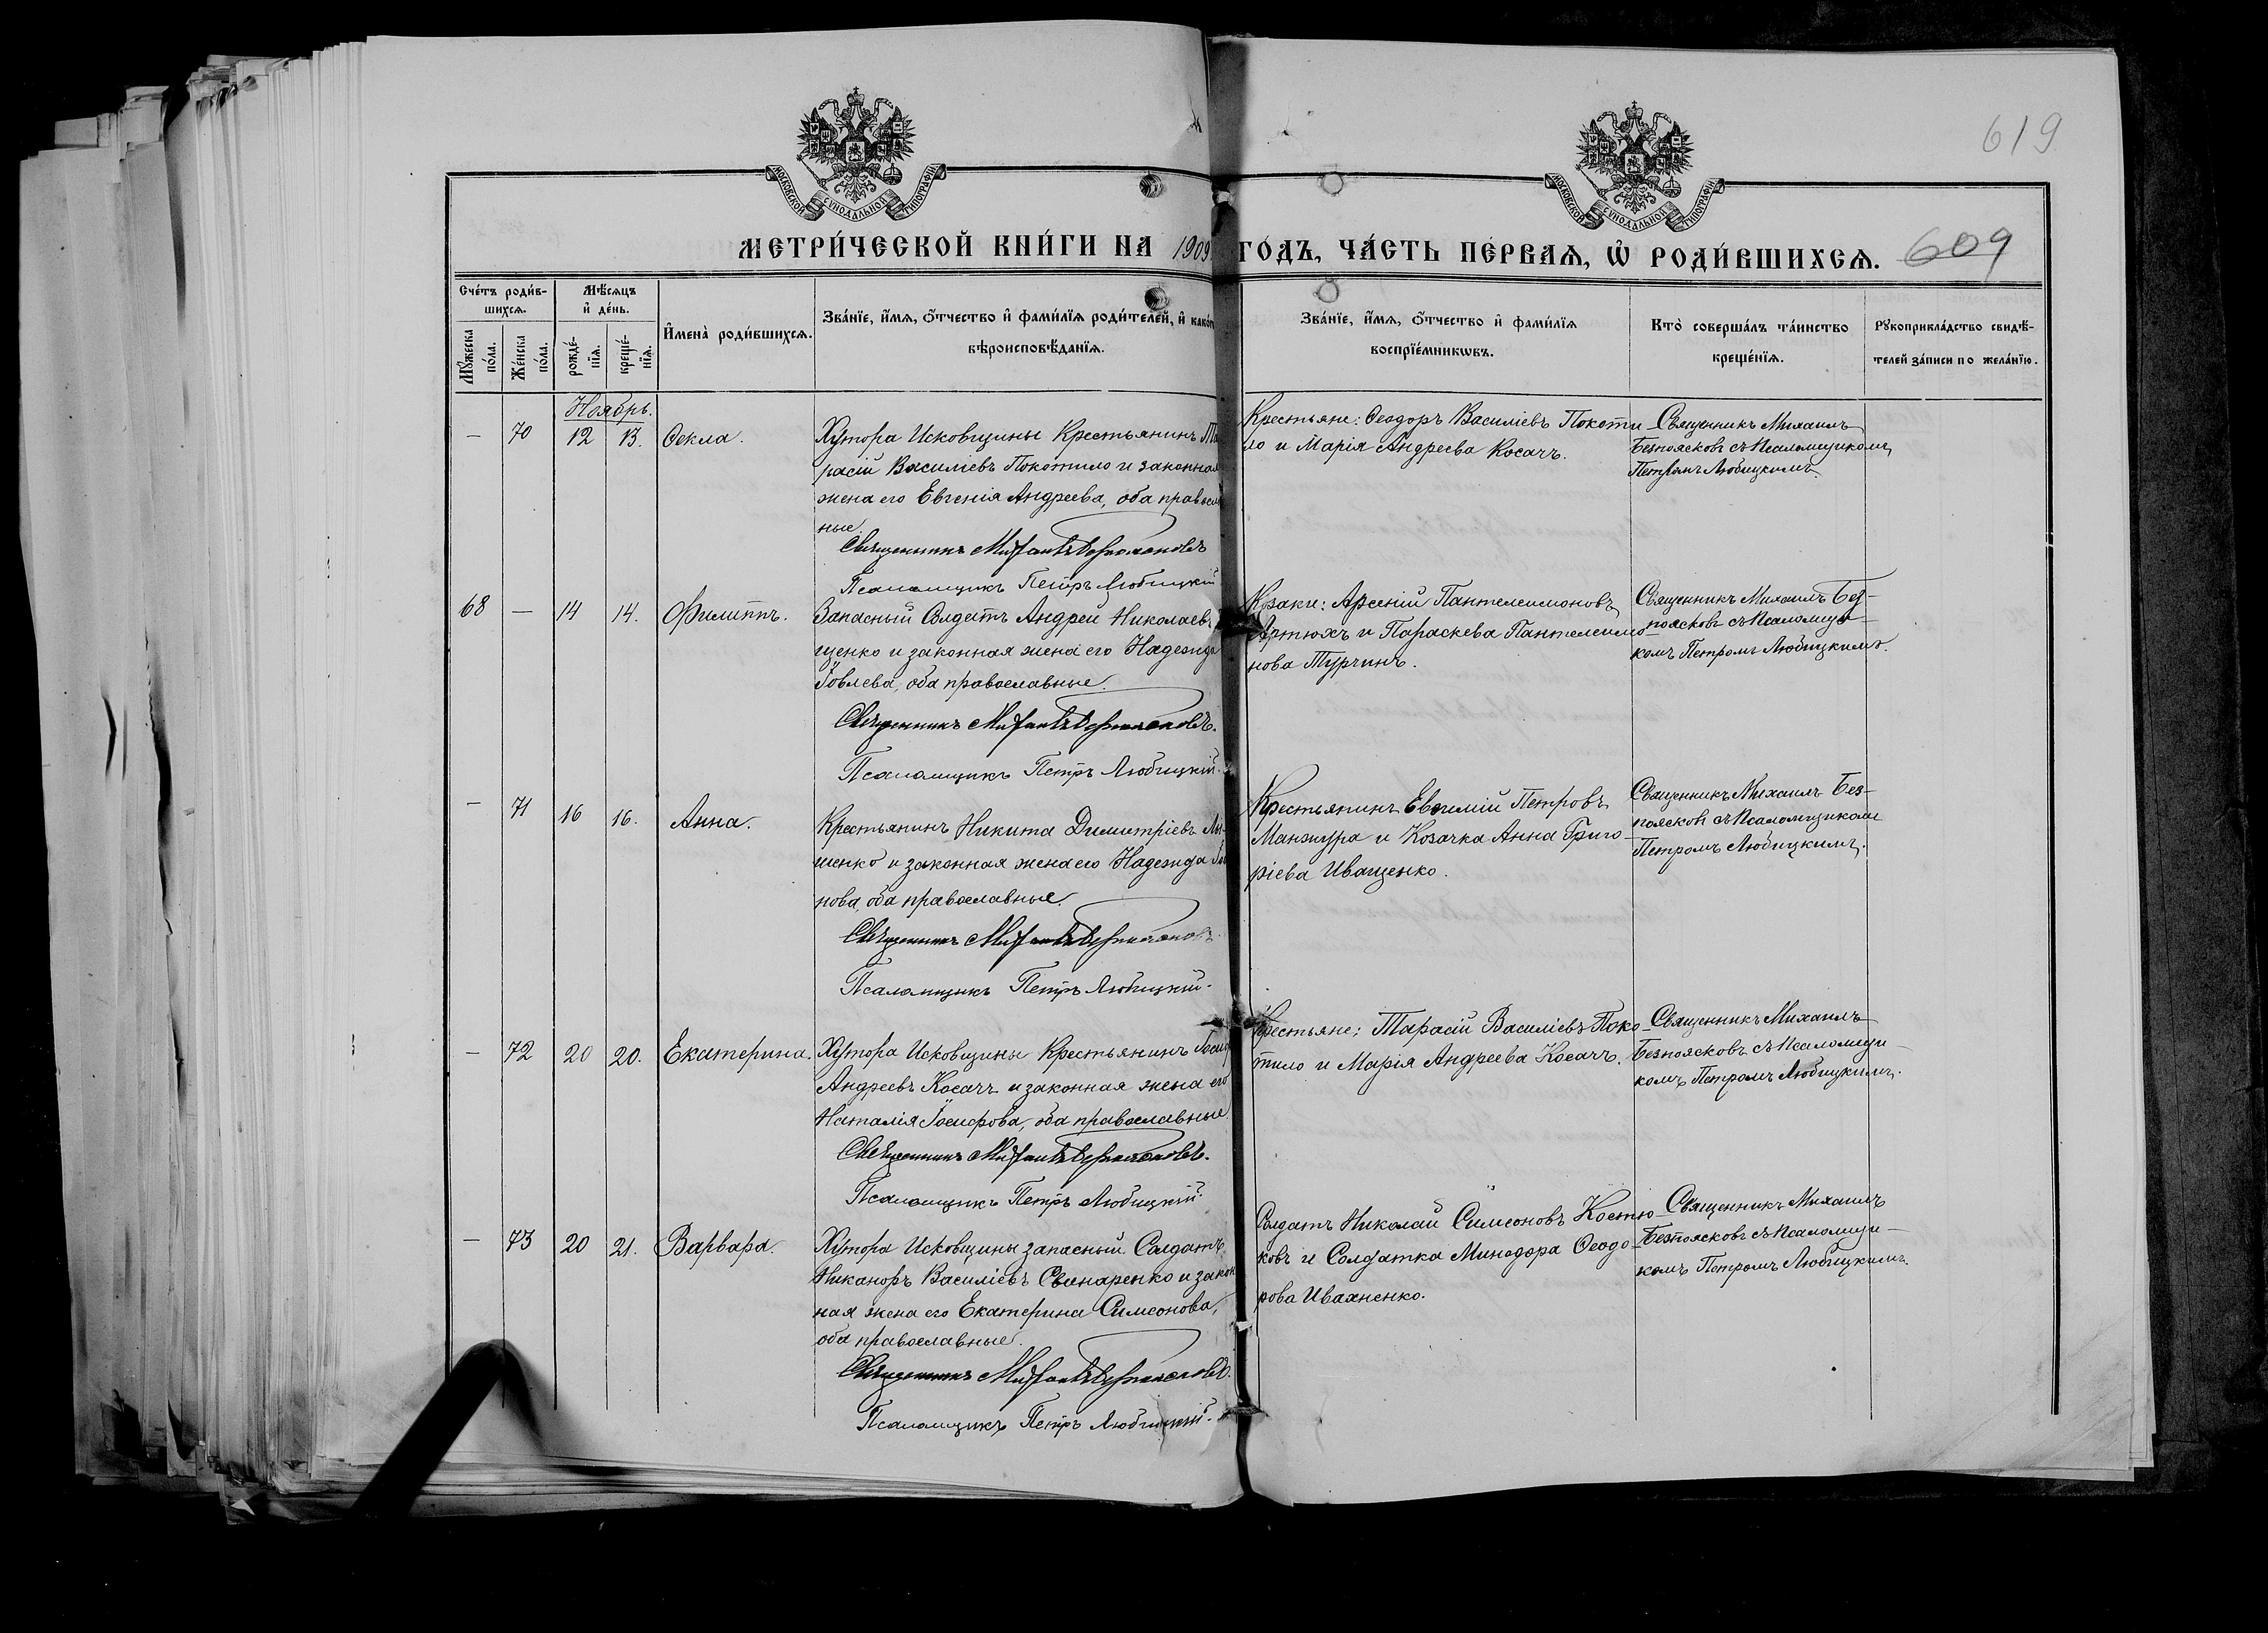 619
МОСКОВСКОЙ СѴНОДАЛЬНОЙ ТИПОГРАФІИ
МОСКОВСКОЙ СѴНОДАЛЬНОЙ ТИПОГРАФІИ
МЕТРИ́ЧЕСКОЙ КНИ́ГИ НА 1909 ГО́ДЪ, ЧА́СТЬ ПЕ́РВАѦ, Ѡ҆ РОДИ́ВШИХСѦ. 609
Сче́тъ роди́в-
шихсѧ.
Мꙋ́жеска
по́ла.
Же́нска
по́ла.
Мѣ́сѧцъ
и҆ де́нь.
рожде́-
нїѧ.
креще́-
нїѧ.
И҆мена̀ роди́вшихсѧ.
Зва́нїе, и҆́мѧ, ѻ҆́тчество и҆ фами́лїѧ роди́телей, и҆
вѣроисповѣ́данїѧ.
Зва́нїе, и҆́мѧ, ѻ҆́тчество и҆ фами́лїѧ
воспрїе́мникѡвъ.
Кто̀ соверша́лъ та́инство
креще́нїѧ.
Рꙋкоприкла́дство свидѣ́-
телей за́писи по жела́нїю.
Ноябрь.
— 70 12 13. Ѳекла.
Хутора Исковщины Крестьянинъ Та
расій Василіевъ Покотило и законная
жена его Евгенія Андреева, оба православ
ные.
Священникъ Михаилъ Безпоясковъ
Псаломщикъ Петръ Любицкій
Крестьяне: Ѳеодоръ Василіевъ Покоти-
ло и Марія Андреева Косачъ.
Священникъ Михаилъ
Безпоясковъ съ Псаломщикомъ
Петромъ Любицкимъ.
68 — 14 14. Филиппъ.
Запасный Солдатъ Андрей Николаевъ
щенко и законная жена его Надежда
Іовлева, оба православные.
Священникъ Михаилъ Безпоясковъ.
Псаломщикъ Петръ Любицкій.
Козаки: Арсеній Пантелеимоновъ
Артюхъ и Параскева Пантелеимо-
нова Турчинъ.
Священникъ Михаилъ Без-
поясковъ съ Псаломщи-
комъ Петромъ Любицкимъ.
— 71 16 16. Анна.
Крестьянинъ Никита Димитріевъ
шенко и законная жена его Надежда
нова, оба православные.
Священникъ Михаилъ Безпоясковъ.
Псаломщикъ Петръ Любицкій.
Крестьянинъ Евѳимій Петровъ
Манжура и Козачка Анна Григо-
ріева Иващенко.
Священникъ Михаилъ Без-
поясковъ съ Псаломщикомъ
Петромъ Любицкимъ.
— 72 20 20. Екатерина.
Хутора Исковщины Крестьянинъ Іосиф
Андреевъ Косачъ и законная жена его
Наталія Іосифова, оба православные.
Священникъ Михаилъ Безпоясковъ.
Псаломщикъ Петръ Любицкій.
Крестьяне: Тарасій Василіевъ Поко-
тило и Марія Андреева Косачъ.
Священникъ Михаилъ
Безпоясковъ съ Псаломщи-
комъ Петромъ Любицкимъ.
— 73 20 21. Варвара.
Хутора Исковщины запасный Солдатъ
Никаноръ Василіевъ Свинаренко и закон
ная жена его Екатерина Симеонова,
оба православные.
Священникъ Михаилъ Безпоясковъ.
Псаломщикъ Петръ Любицкій.
Солдатъ Николай Симеоновъ Костю-
ковъ и Солдатка Минодора Ѳеодо-
рова Ивахненко.
Священникъ Михаилъ
Безпоясковъ съ Псаломщи-
комъ Петромъ Любицкимъ.